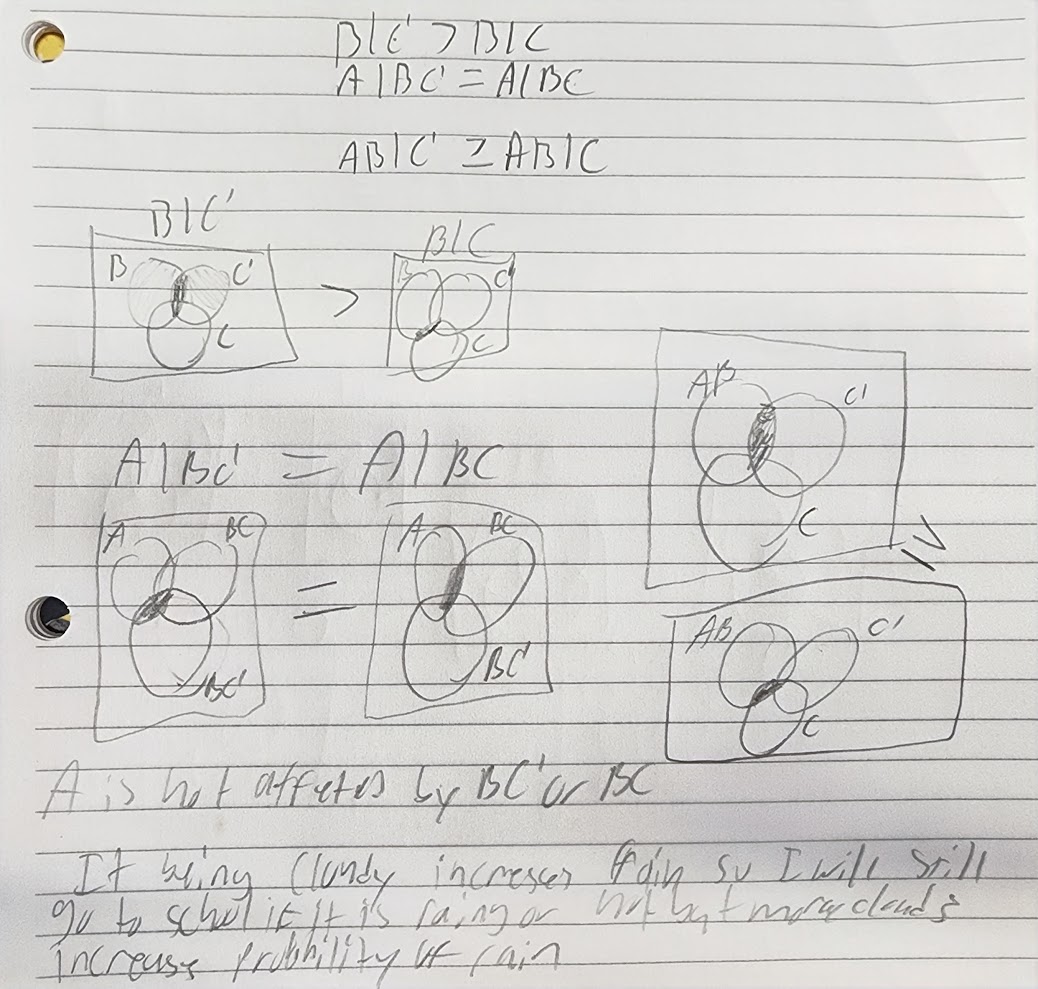 B|C' > B|C
A|BC' = A|BC
AB|C' ≥ AB|C
B|C'
B C'
C
>
B|C
B C'
C
A|BC' = A|BC
A BC
BC'
=
A BC
BC'
AB C'
C
≥
AB C'
C
A is not affeted by BC' or BC
It being Cloudy increases Rain so I will still
go to school if it is raing or not but more clouds
increase probility of rain